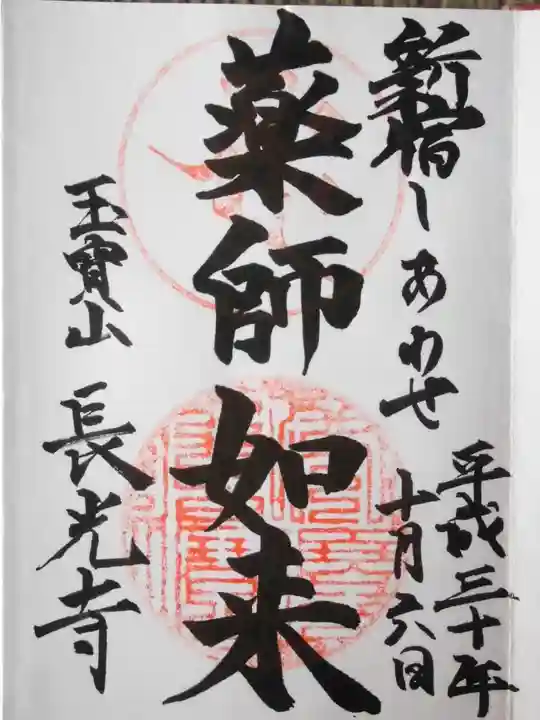 新宿しあわせ
平成三十年
十月六日
薬師如来
玉寳山 長光寺